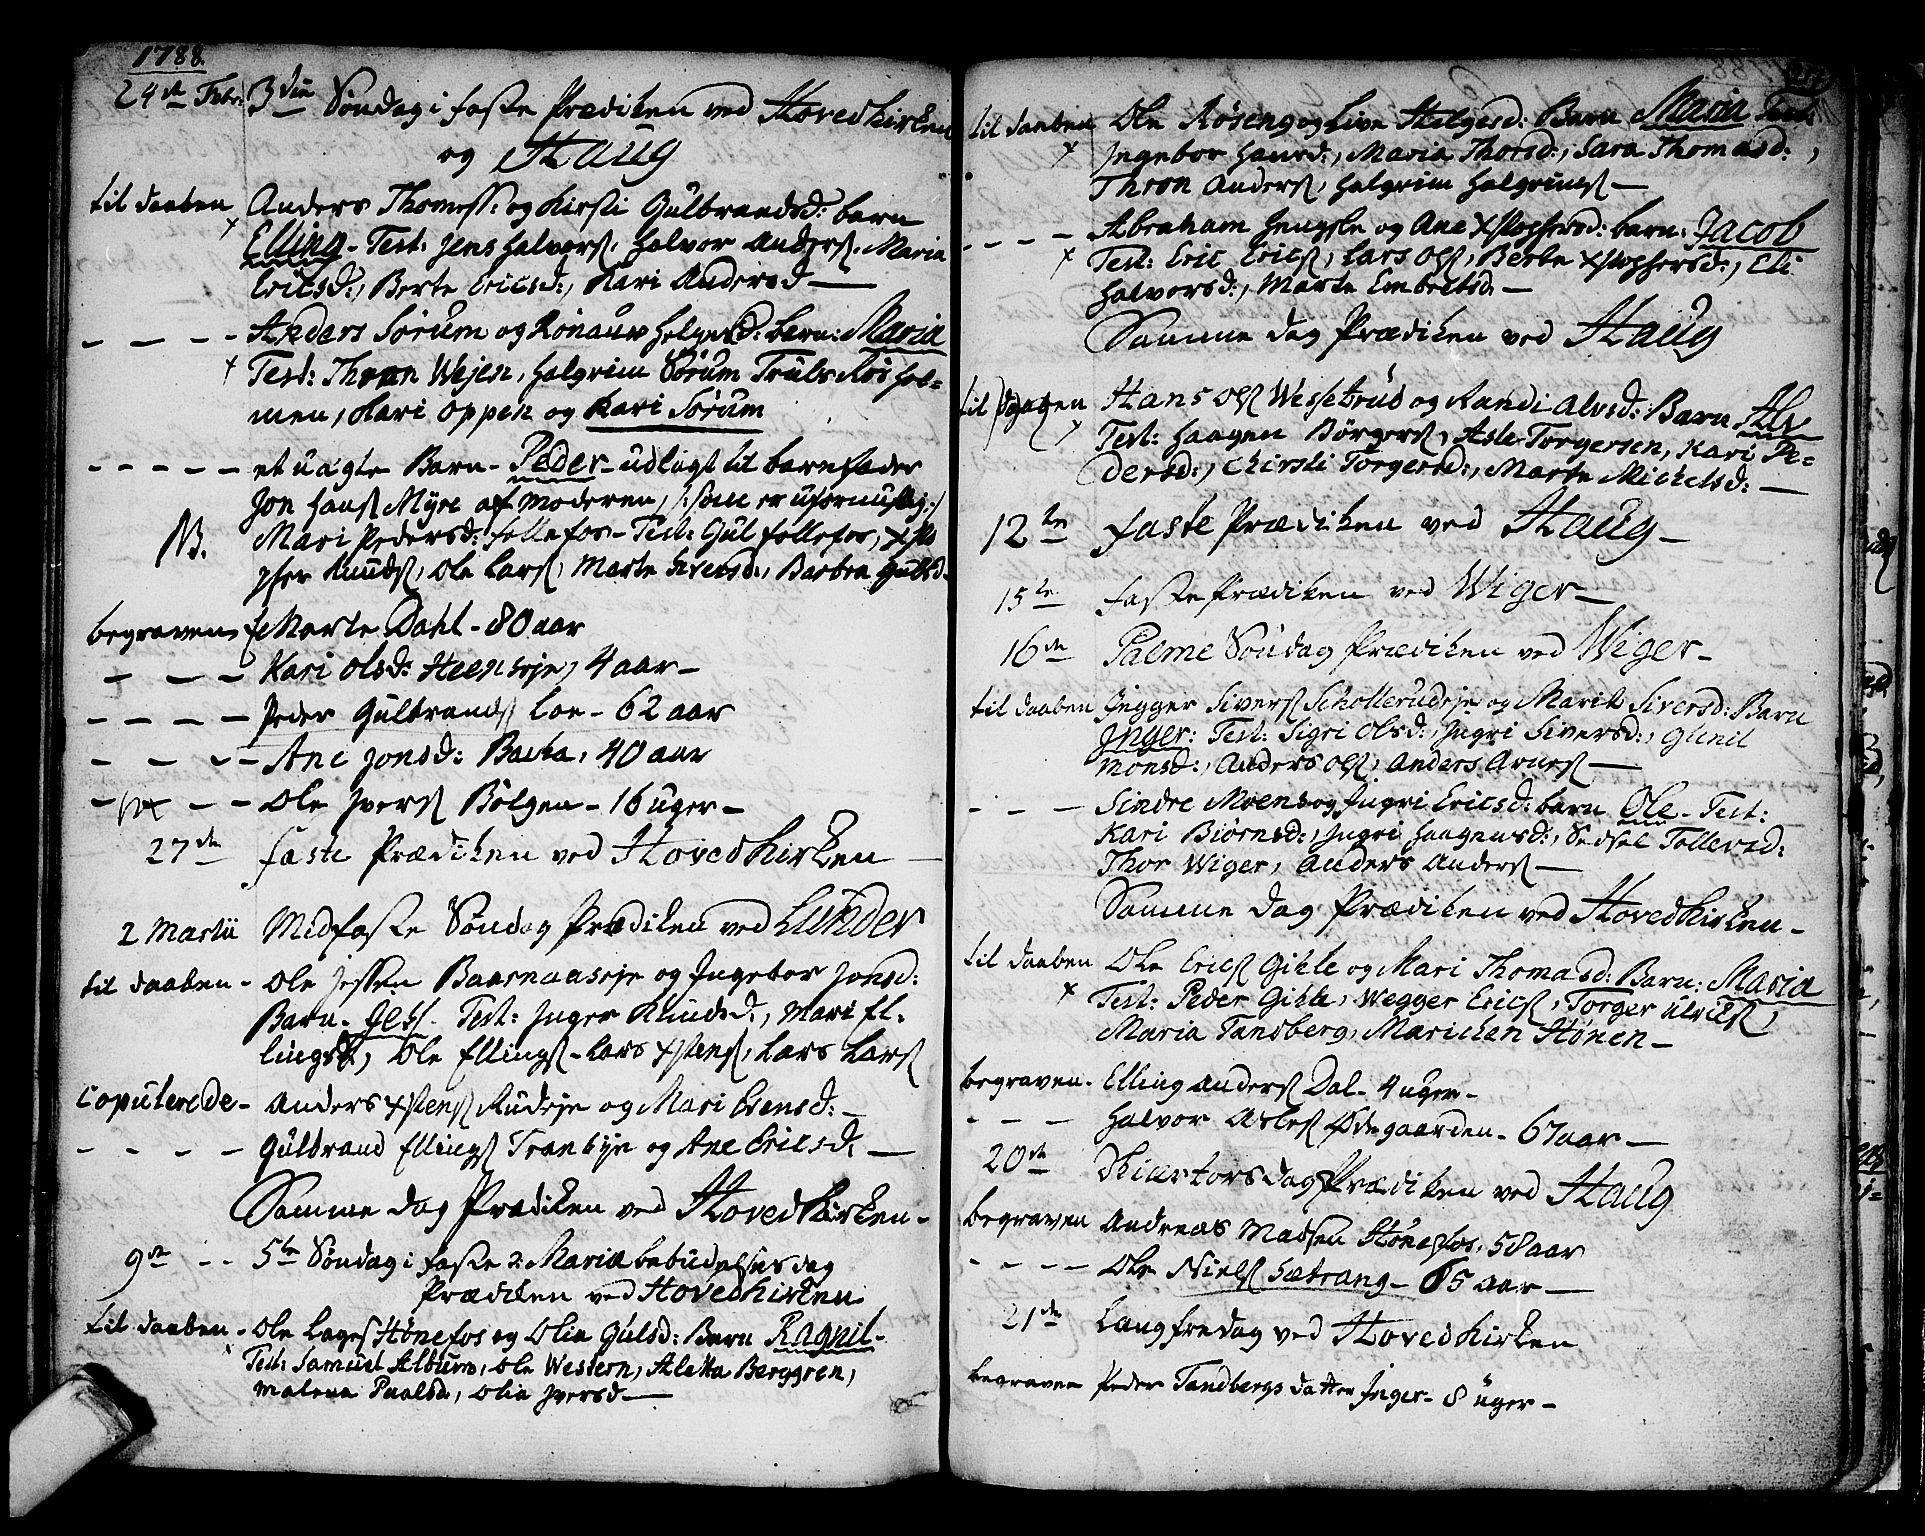 1788.
24de Febr. 3die Søndag i faste Prædiken ved Hovedkirken
og Haug
til daaben Anders Thomess: og Kirsti Gulbrandsd: barn
Elling - Test: Jens Halvors, Halvor Anders, Maria
Ericsd:, Berte Ericsd:, Kari Andersd —
- - - - Anders Sørum og Rønauv Helgesd: barn: Maria
Test: Thron Wejen, Halgrim Sørum Truls Røshol=
men, Kari Oppen og Kari Sørum
- - - - - et uægte Barn - Peder - udlagt til barnefader
Jon Hans Myre af moderen, /: som er ufornuftig :/
NB. Mari Pedersd: Follefos - Test: Gul Follefos, Xsto
pher Knuds, Ole Lars, Marte Siversd:, Barbra Gulsd.
begraven Marte Dahl - 80 aar
- - - - Kari Olsd: Heenseje, 4 aar -
- - - - Peder Gulbrands Loe - 62 aar
- - - - Ane Jonsd: Bacha, 40 aar
- - - Ole Ivers Bølgen - 16 uger -
27de faste Prædiken ved Hovedkirken —
2 Martii Midfaste Søndag Prædiken ved Lunder
til daaben - Ole Jessen Baarnaaseje og Ingebor Jonsd:
Barn - Jess. Test: Inger Knudsd:, Mari El-
lingsd, Ole Ellings - Lars Xstens, Lars Lars
Copulerede - Anders Xstens Rudeje og Mari Evensd: -
- - - - Gulbrand Ellings Tranbyje og Ane Ericsd —
Samme dag Prædiken ved Hovedkirken -
9de - - 5te Søndag i faste Maria bebudelses dag
Prædiken ved Hovedkirken
til daaben - Ole Lages Hønefos og Olia Gulsd: Barn Ragnil -
Test: Samuel Album, Ole Western, Aletta Berggren,
Malena Paalsd, Olia Iversd —
til daaben Ole Røseng og Live Helgesd: Barn Maria Test:
Ingebor Hansd:, Maria Thorsd:, Sara Thomasd:,
Thron Anders, Halgrim Halgrims —
- - - - Abraham Hengsle og Ane Xstophersd: barn: Jacob
Test: Eric Erics, Lars Ols, Berte Xstophersd:, Eli
Halvorsd:, Marte Embretsd: —
Samme dag Prædiken ved Haug
til daaben Hans Ols Wessetrud og Randi Alvsd: Barn Alv
Test: Haagen Børgers, Asle Torgersen, Kari Pe=
dersd:, Chirsti Torgersd:, Marte Michelsd: —
12te faste Prædiken ved Haug -
15te faste Prædiken ved Wiger —
16de Palme Søndag Prædiken ved Wiger -
til daaben Jegger Sivers Schollerudeje og Marit Siversd: Barn
Inger: Test: Sigri Olsd:, Ingri Siversd:, Gunil
Monsd:, Anders Ols, Anders Arnes —
- - - Sindre Moen og Ingri Ericsd: barn Ole - Test:
Kari Biørnsd:, Ingri Haagensd:, Sedsel Tollevsd:
Thor Wiger, Anders Anders —
Samme dag Prædiken ved Hovedkirken -
til daaben Ole Erics Gihle og Mari Thomasd: Barn: Maria
Test: Peder Gihle, Wegger Erics, Torger Ulrics,
Maria Tandberg, Marichen Hønen -
begraven - Elling Anders Dal - 4 uger -
- - - Halvor Asles Ødegaarden - 67 aar —
20de Skiertorsdag Prædiken ved Haug
begraven Andreas Madsen Hønefos, 58 aar
- - - - Ole Niels Sætrang - 65 aar —
21de Langfredag ved Hovedkirken
begraven Peder Tandbergs datter Inger - 8 uger -